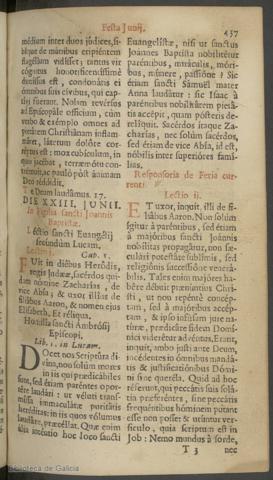 Festa Junij.
437
médium inter duos júdices, si-
bíque de múribus eripiéntem
flagéllum vidísset; tantus vir
cógitus
dimíssus est, condonáns et
ómnibus suis cívibus, qui cap-
tivi fúerant. Nolam revérsus
ad Episcopále offícium, cùm
verbo & exémplo omnes ad
pietátem Christiánam inflam-
máret, láterum dolóre cor-
réptus est: mox cubículum, in
quo jacébat, terræmótu con-
trémuit, ac paulò pòst ánimam
Deo réddidit.
Te Deum laudámus. 17.
DIE XXIII. JUNII.
In Vigilia sancti Joannis
Baptistæ.
Léctio sancti Evangélij
secúndùm Lucam.
Lectio j.
Cap. 1.
FUit in diébus Heródis,
regis Judææ, sacérdos qui-
dam nómine Zacharías, de
vice Abía; & uxor illíus de
filiábus Aaron, & nomen ejus
Elísabeth. Et réliqua.
Homilía sancti Ambrósij
Epíscopi.
Lib. 1. in Lucam.
DOcet nos Scriptúra di-
vína, non solùm mores
in iis qui prædicábiles
sunt, sed étiam paréntes opor-
tére laudári: ut véluti trans-
míssa immaculátæ puritátis
heréditas, in iis quos vólumus
laudáre, præcéllat. Quæ enim
ália inténtio hoc loco sancti
Evangelístæ, nisi ut sanctus
Joannes Baptísta nobilitétur
paréntibus, miráculis, móri-
bus, múnere, passióne? Sic
étiam sancti Sámuel mater
Anna laudátur: sic Isaac à
paréntibus nobilitátem pietá-
tis accépit, quam pósteris de-
relíquit. Sacérdos ítaque Za-
charías, nec solùm sacérdos,
sed étiam de vice Abía, id est,
nóbilis inter superióres famí-
lias.
Responsoria de Feria cur-
renti.
Lectio ij.
ET uxor, ínquit, illi de fi-
liábus Aaron. Non solùm
ígitur à paréntibus, sed étiam
à majóribus sancti Joánnis
nobílitas propagátur, non sæ-
culári potestáte sublímis, sed
religiónis successióne venerá-
bilis. Tales enim majóres ha-
bére débuit præcúrsor Chri-
sti, ut non repénte concép-
tam, sed à majóribus accép-
tam, & ipso infúsam jure na-
túræ, prædicáre fidem Dómi-
ni viderétur advéntus. Erant,
ínquit, ambo justi ante Deum,
incedéntes in ómnibus mandá-
tis & justificatiónibus Dómi-
ni sine queréla. Quid ad hoc
réferunt, qui peccátis suis solá-
tia præferéntes, sine peccátis
frequéntibus hóminem putant
esse non posse: & utúntur ver-
sículo, quia scriptum est in
Job: Nemo mundus à sorde,
T 3 nec
Biblioteca de Galicia